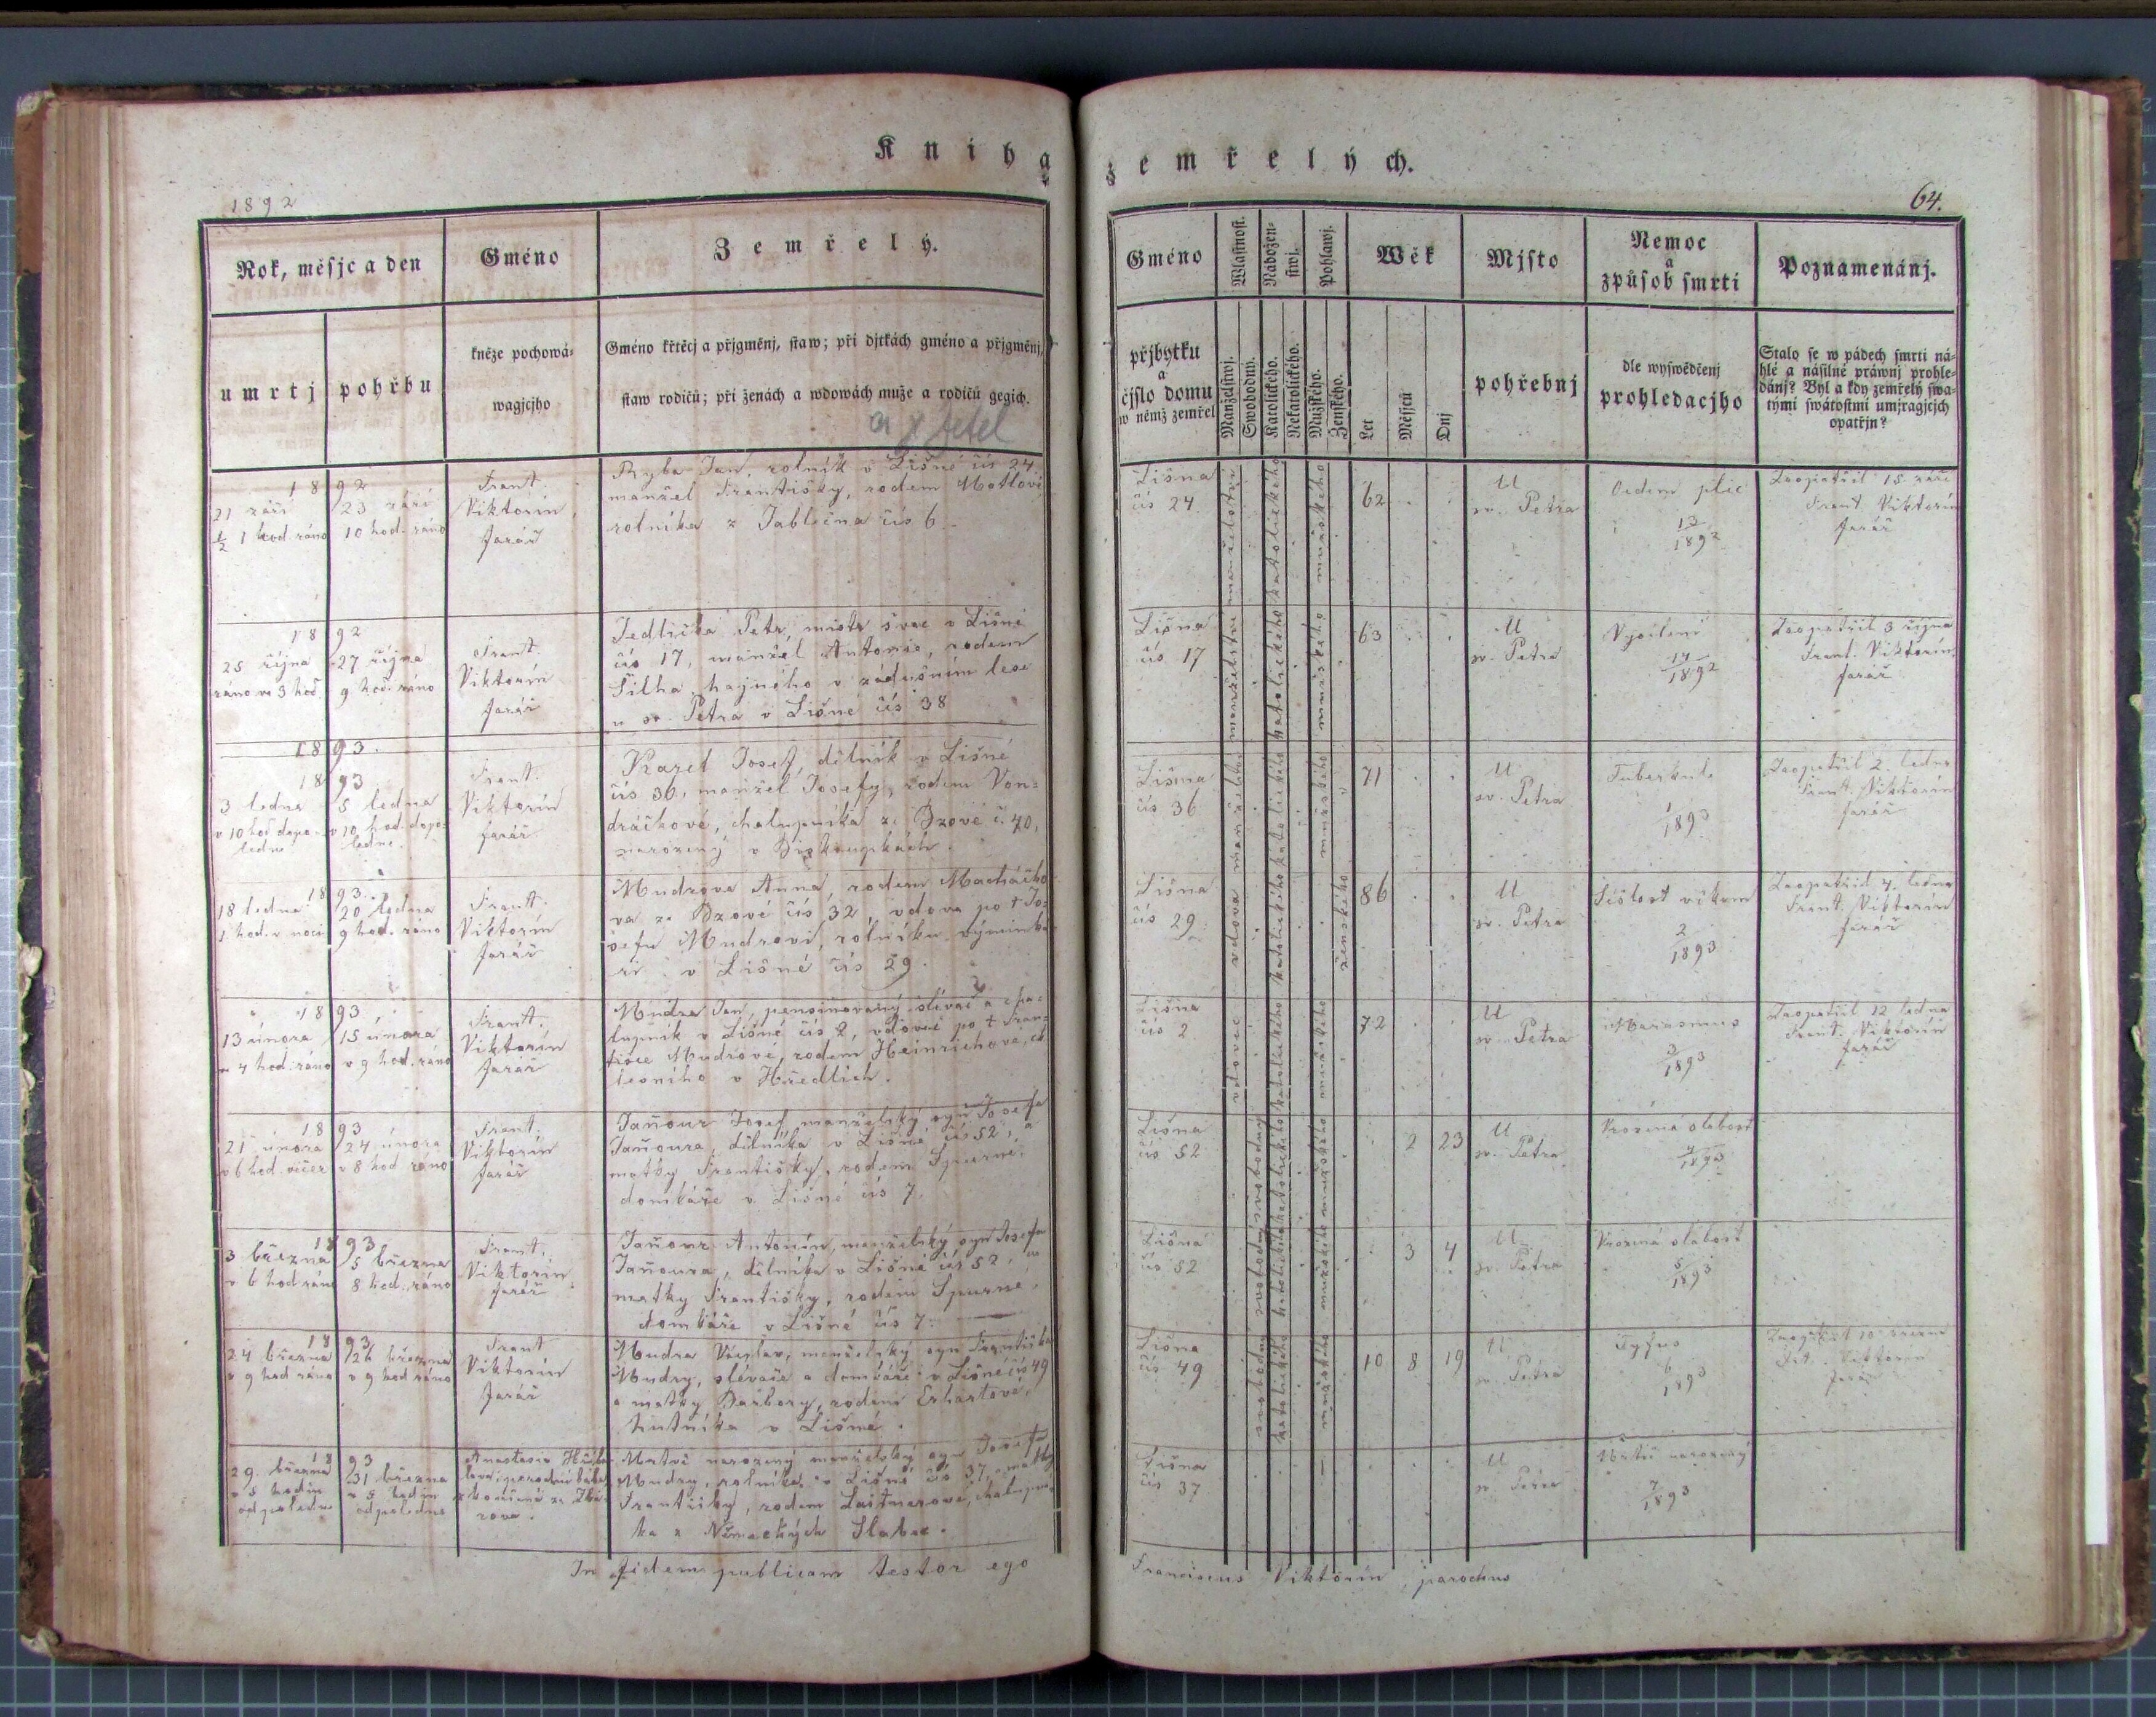 Kniha zemřelých.
1892
64.
Rok, měsjc a den
Gméno
Zemřelý.
umrtj
pohřbu
kněze pochowá-
wagjcjho
Gméno křtěcj a přjgměnj, staw; při djtkách gméno a přjgměnj,
staw rodičů; při ženách a wdowách muže a rodičů gegich.
Gméno
přjbytku
a
čjslo domu
w němž zemřel
Wlastnost.
Manželstwj.
Swobodny.
Nabožen-
stwj.
Katolického.
Nekatolického.
Pohlawj.
Mužského.
Ženského.
Wěk
Let
Měsjců
Dnj
Mjsto
pohřebnj
Nemoc
a
způsob smrti
dle wyswědčenj
prohledacjho
Poznamenánj.
Stalo se w pádech smrti ná-
hlé a násilné práwnj prohle-
dánj? Byl a kdy zemřelý swa-
tými swátostmi umjragjcjch
opatřjn?
1892
21 září
½ 1 hod. ráno
23 září
10 hod. ráno
Frant.
Viktorin,
farář
Ryba Jan, rolník v Lišné čís 24.
manžel Františky, rodem Motlové
rolníka z Jablečna čís 6.
Lišna
čís 24.
manželství
katolického
mužského
62
U
sv. Petra
Oedem plic
13
1892
Zaopatřil 15 září
Frant. Viktorin
farář
1892
25 října
ráno ve 3 hod.
27 října
9 hod. ráno
Frant.
Viktorin
farář
Jedlička Petr, mistr švec v Lišné
čís 17, manžel Antonie, rodem
Šilha, hajného v zádušním lese
u sv. Petra v Lišné čís 38
Lišna
čís 17
manželství
katolického
mužského
63
U
sv. Petra
Vysílení
14
1892
Zaopatřil 3 října
Frant. Viktorin,
farář
1893.
1893
3 ledna
v 10 hod dopo-
ledne
5 ledna
v 10 hod. dopo-
ledne.
Frant.
Viktorin
farář
Karel Josef, dělník v Lišné
čís 36, manžel Josefy, rodem Von-
dráčkové, chalupníka ze Bzové č. 40,
narozený v
Lišna
čís 36
katolického
mužského
71
U
sv. Petra
Tuberkule
1
1893
Zaopatřil 2. ledna
Frant. Viktorin
farář
1893.
18 ledna
1 hod. v noci
20 ledna
9 hod. ráno
Frant.
Viktorin
farář
Mudrova Anna, rodem Macháčko-
va ze Bzové čís 32, vdova po † Jo-
sefu Mudrovi, rolníku výminká-
ři v Lišné čís 29.
Lišna
čís 29
vdova
katolického
ženského
86
U
sv. Petra
Sešlost věkem
2
1893
Zaopatřil 4. ledna
Frant. Viktorin
farář
1893
13 února
v 4 hod. ráno
15 února
v 9 hod. ráno
Frant.
Viktorin
farář
Mudra Jan, pensionovaný slívač a cha-
lupník v Lišné čís 2, vdovec po † Fran-
tišce Mudrové, rodem Heinrichova,
lesního v Hředlích.
Lišna
čís 2
vdovec
katolického
mužského
72
U
sv. Petra
Marasmus
3
1893
Zaopatřil 12 ledna
Frant. Viktorin
farář
1893
21 února
v 6 hod. večer
24 února
v 8 hod. ráno
Frant.
Viktorin
farář
Jaňour Josef, manželský syn Josefa
Jaňoura, dělníka v Lišné čís 52, a
matky Františky, rodem Spurné,
domkáře v Lišné čís 7.
Lišna
čís 52
svobodný
katolického
mužského
2 23
U
sv. Petra
Vrozená slabost
4
1893
1893
3 března
v 6 hod ráno
5 března
8 hod. ráno
Frant.
Viktorin
farář
Jaňour Antonín, manželský syn Josefa
Jaňoura, dělníka v Lišné čís 52, a
matky Františky, rodem Spurné,
domkáře v Lišné čís 7.
Lišná
čís 52
svobodný
katolického
mužského
3 4
U
sv. Petra
Vrozená slabost
5
1893
1893
24 března
v 9 hod ráno
26 března
v 9 hod ráno
Frant
Viktorin
farář
Mudra Václav, manželský syn Františka
Mudry, slévače a domkáře v Lišné čís 49
a matky Barbory, rodem Erhartové,
hutníka v Lišné.
Lišna
čís 49
svobodný
katolického
mužského
10 8 19
U
sv. Petra
Tyfus
6
1893
Zaopatřil 10 března
Frt. Viktorin
farář
1893
29. března
v 5 hodin
odpoledne
31 března
v 5 hodin
odpoledne
Anastasie
zkoušená ze Zbi-
rova.
Mrtvě narozený manželský syn Josefa
Mudry, rolníka v Lišné čís 37, a matky
Františky, rodem Laitnerové, chalupní-
ka z Německých Slabec.
Lišna
čís 37
U
sv. Petra
Mrtvě narozený
7
1893
In fidem publicam testor ego
Franciscus Viktorin, parochus